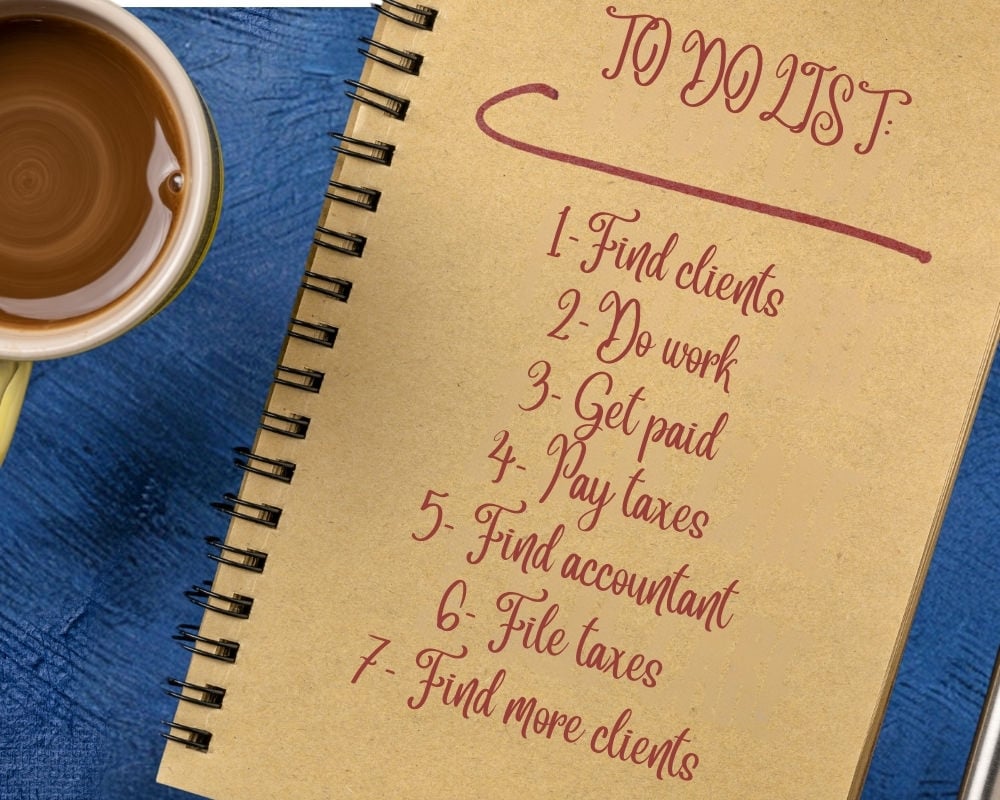 TO DO LIST:
1- Find clients
2- Do work
3- Get paid
4- Pay taxes
5- Find accountant
6- File taxes
7- Find more clients